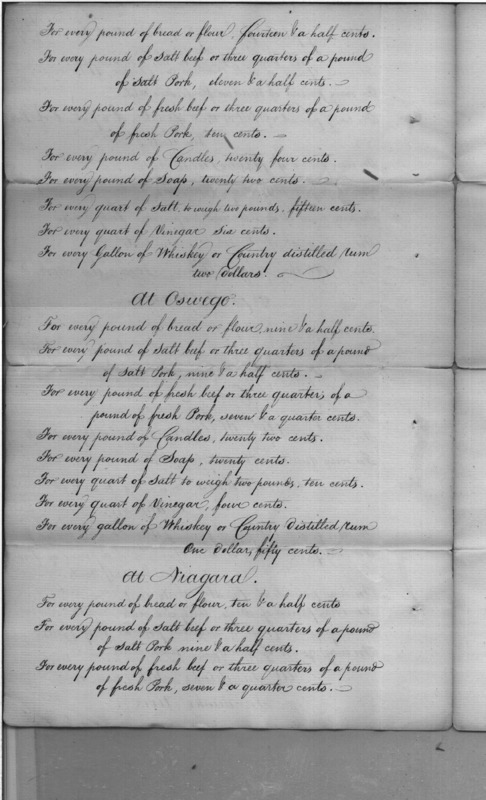 For every pound of bread or flour, fourteen & a half cents.
For every pound of Salt beef or three quarters of a pound
of Salt Pork, eleven & a half cents.
For every pound of fresh beef or three quarters of a pound
of fresh Pork, ten cents.
For every pound of Candles, twenty four cents.
For every pound of Soap, twenty two cents.
For every quart of Salt, to weigh two pounds, fifteen cents.
For every quart of Vinegar Six cents.
For every Gallon of Whiskey or Country distilled rum
two Dollars.
At Oswego.
For every pound of bread or flour, nine & a half cents.
For every pound of Salt beef or three quarters of a pound
of Salt Pork, nine & a half cents.
For every pound of fresh beef or three quarters of a
pound of fresh Pork, seven & a quarter cents.
For every pound of Candles, twenty two cents.
For every pound of Soap, twenty cents.
For every quart of Salt to weigh two pounds, ten cents.
For every quart of Vinegar, four cents.
For every gallon of Whiskey or Country Distilled rum
One dollar, fifty cents.
At Niagara.
For every pound of bread or flour, ten & a half cents
For every pound of Salt beef or three quarters of a pound
of salt Pork nine & a half cents.
For every pound of fresh beef or three quarters of a pound
of fresh Pork, seven & a quarter cents.